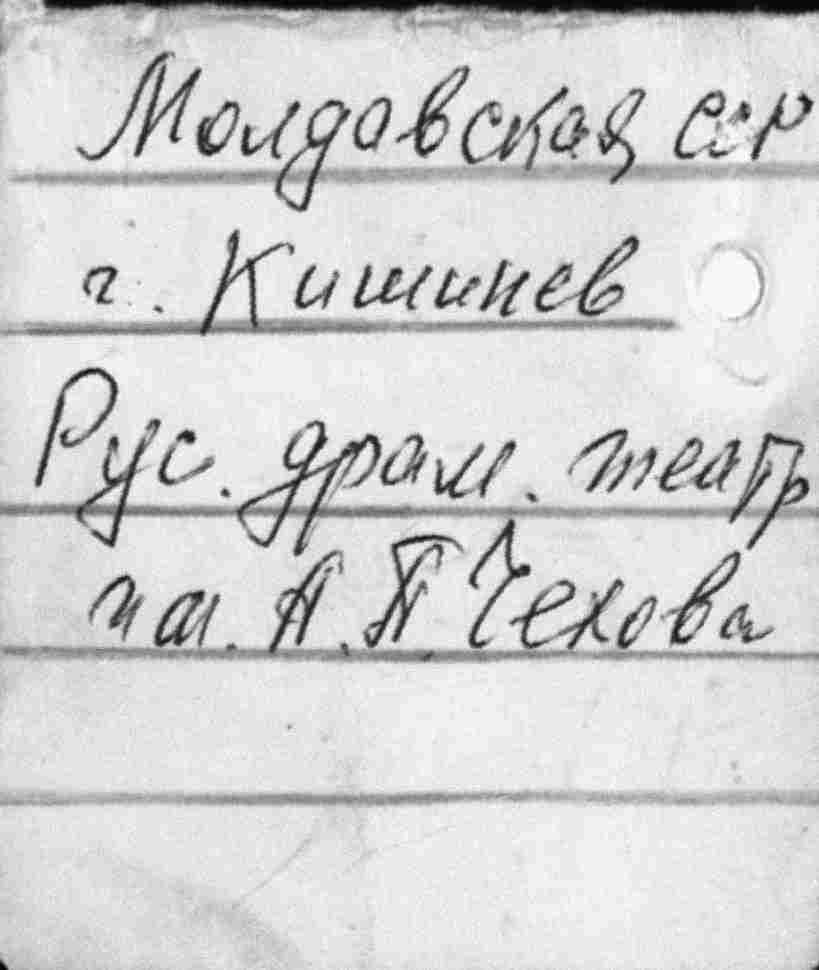 Молдавская ССР
г. Кишинев
Рус. драм. театр
им. А.П. Чехова